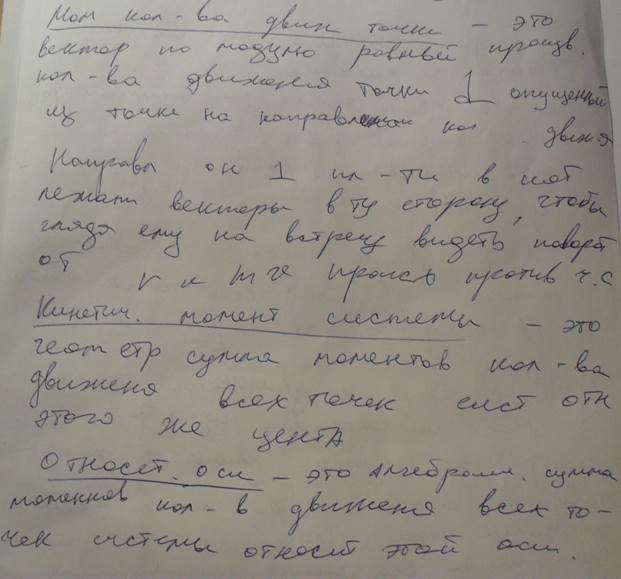 Мом кол-ва движ точки - это
вектор по модулю равный произв.
кол-ва движения точки ⊥ опущенный
из точки на направлении кол движ-я
Направл он ⊥ пл-ти в кот
лежат векторы в ту сторону, чтобы
глядя ему на встречу видеть поворот
от r к mv происх против ч.с
Кинетич. момент системы - это
геометр сумма моментов кол-ва
движеня всех точек сист отн
этого же центА
Относит. оси - это Алгебраич. сумма
моментов кол-в движеня всех то-
чек системы относит этой оси.